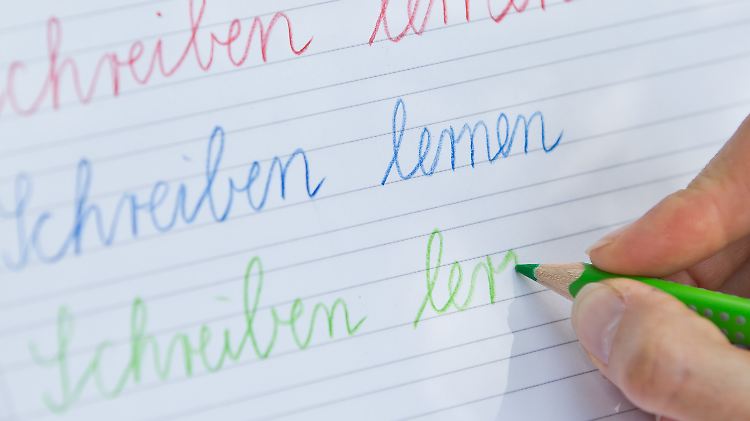 chreiben lernen
Schreiben lernen
Schreiben lern